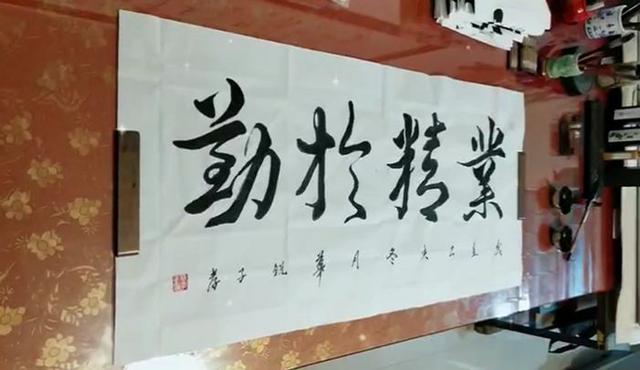 業精於勤
歲在己亥冬月華銳子